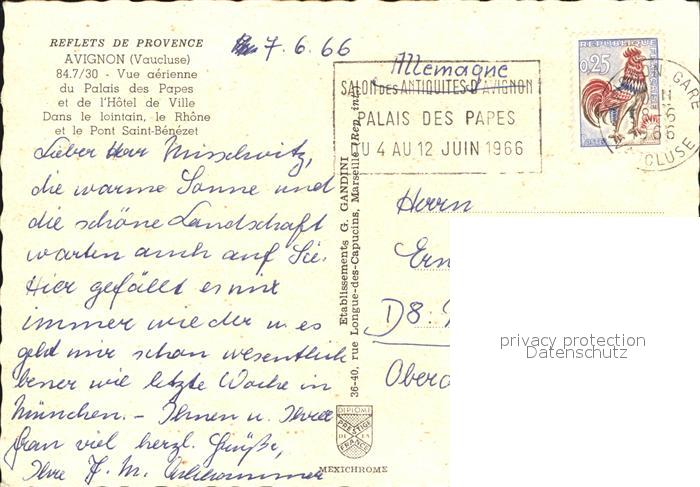 REFLETS DE PROVENCE
AVIGNON (Vaucluse)
84.7/30 - Vue aérienne
du Palais des Papes
et de l'Hôtel de Ville
Dans le lointain, le Rhône
et le Pont Saint-Bénézet
7.6.66
Lieber Herr
die warme Sonne und
die schöne Landschaft
warten auch auf Sie.
Hier gefällt es mir
immer wieder u. es
geht mir schon wesentlich
besser wie letzte Woche in
München. - Ihnen u. Ihrer
Frau viel herzl. Grüße,
Ihre F. M.
Etablissements G. GANDINI
36-40, rue Longue-des-Capucins, Marseille (Rep. int.)
DIPLOME
PRESTIGE
DE LA
FRANCE
MEXICHROME
Allemagne
SALON DES ANTIQUITES D'AVIGNON
PALAIS DES PAPES
DU 4 AU 12 JUIN 1966
REPUBLIQUE FRANCAISE
0,25
GARE
66
VAUCLUSE
Herrn
D8
privacy protection
Datenschutz